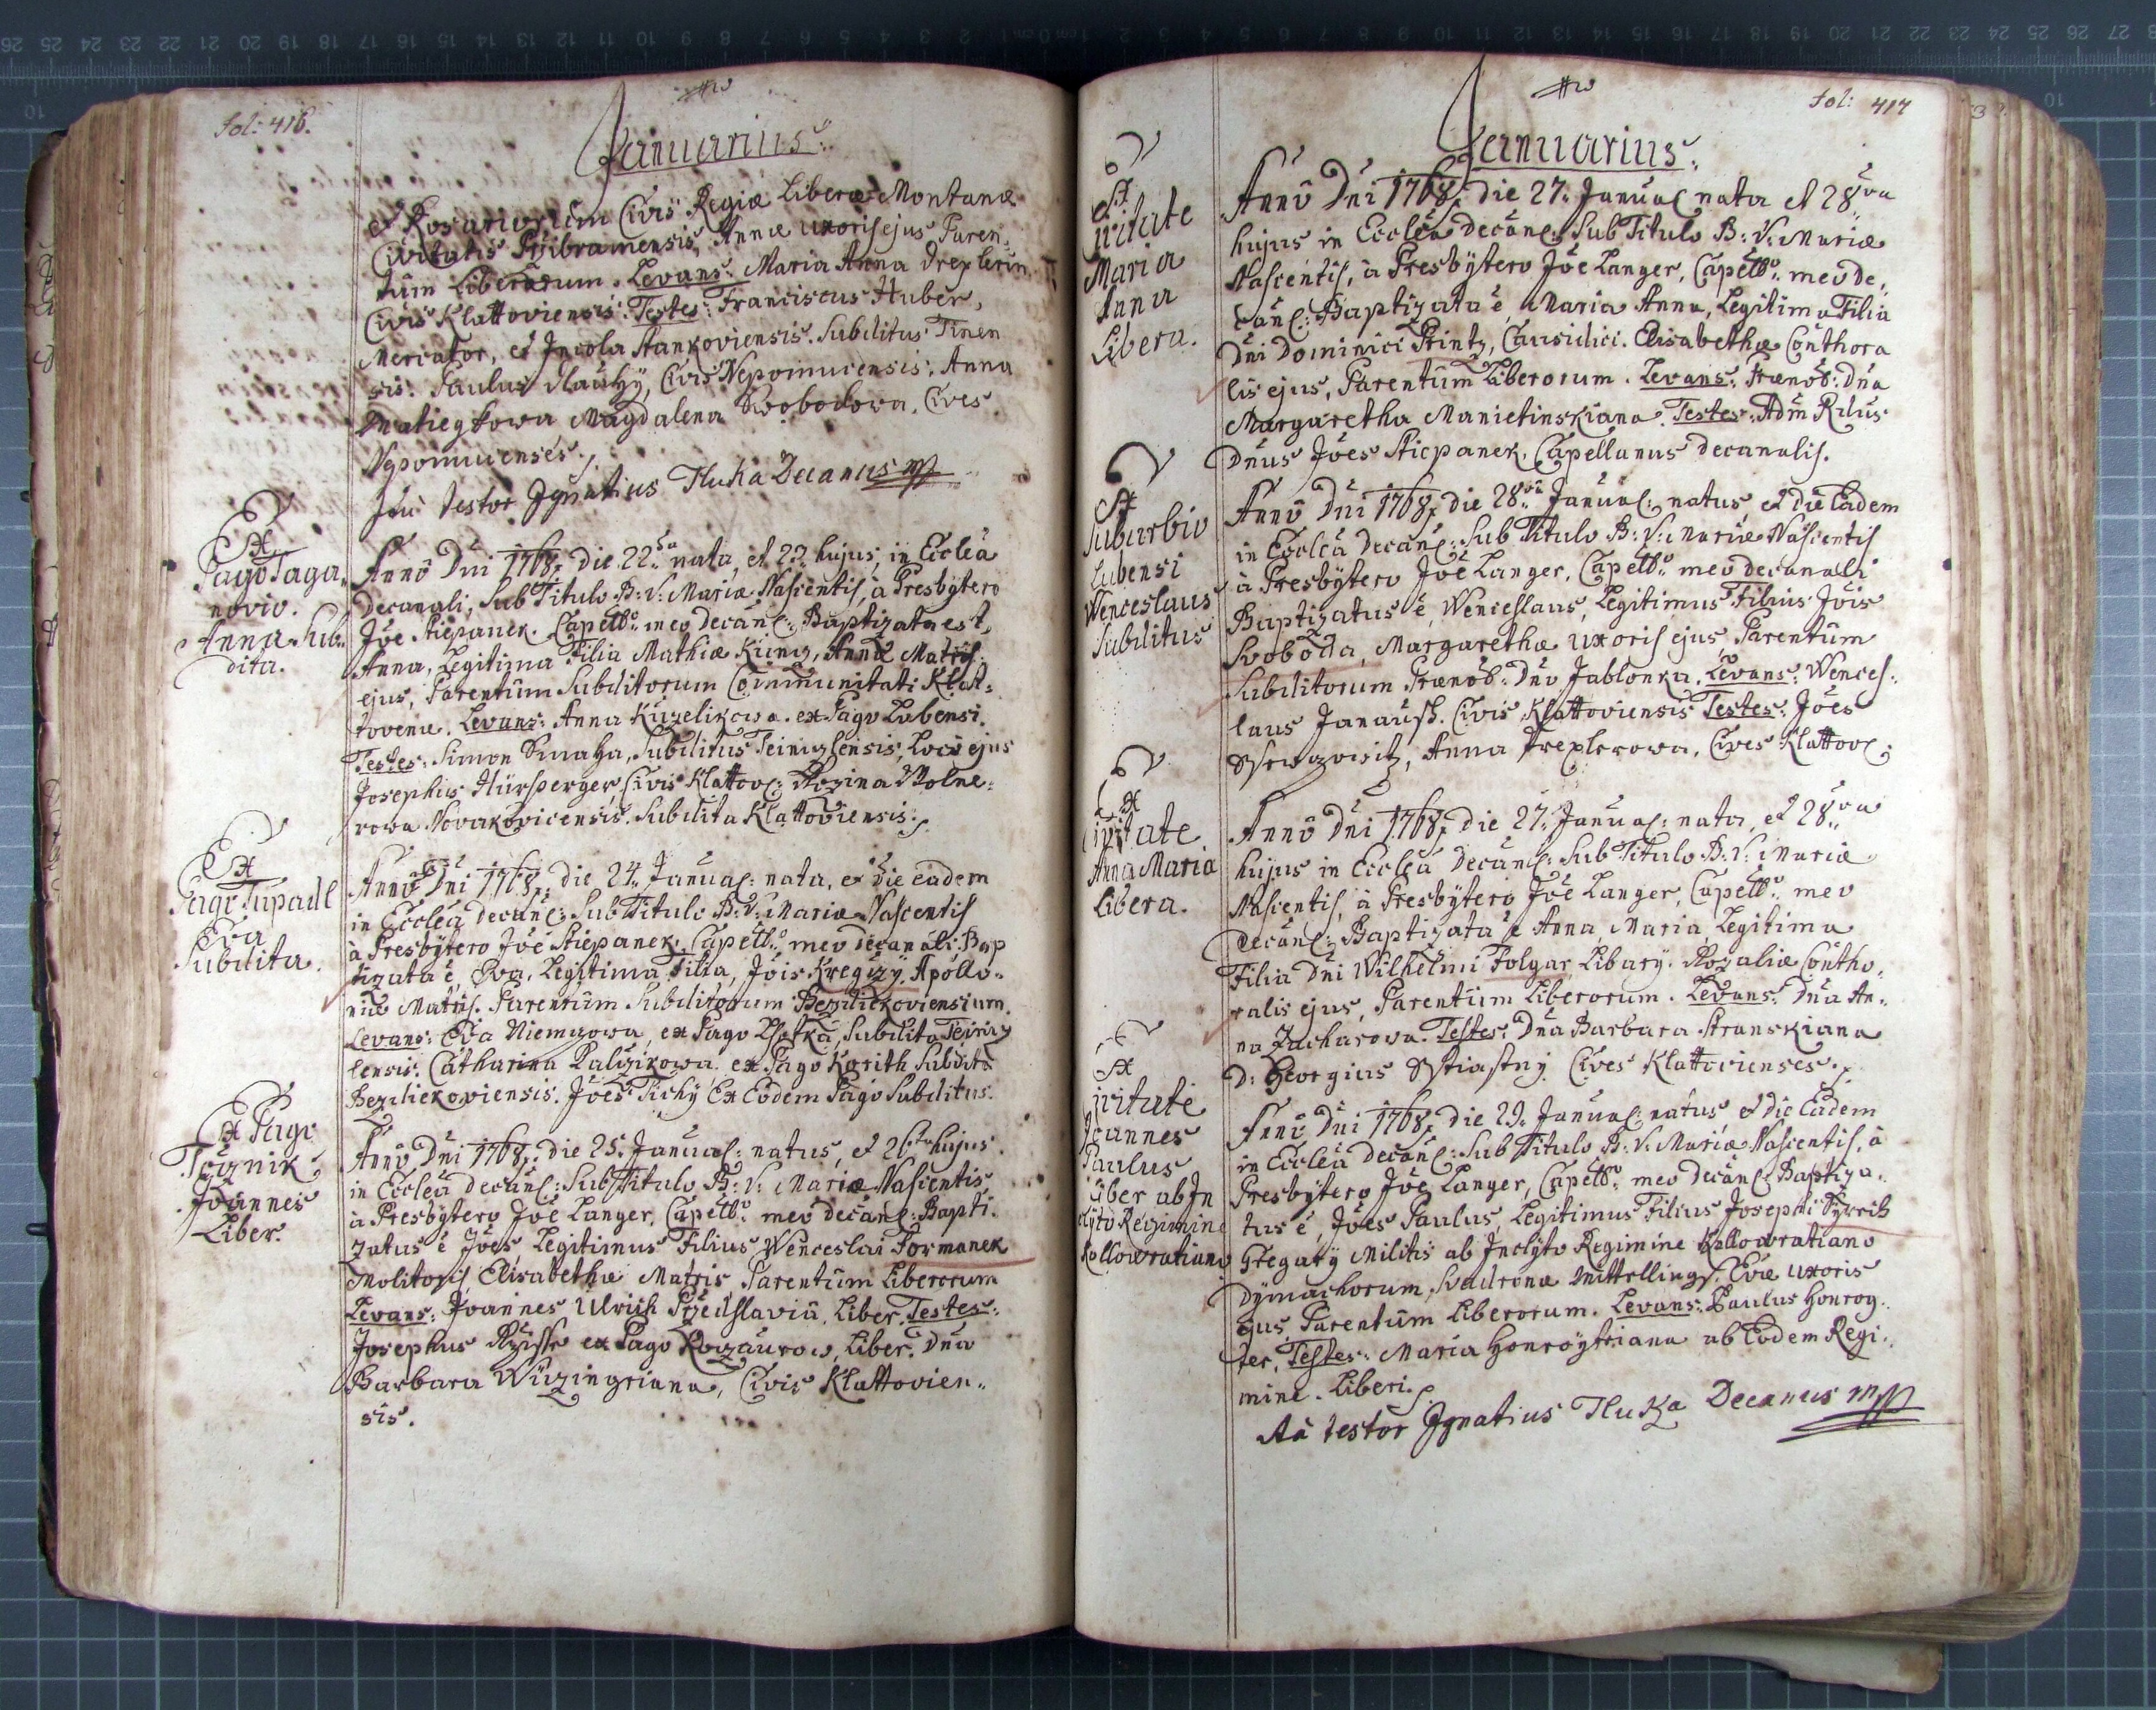 fol: 416.
Januarius
et Rosariorum Civis Regiæ Liberæ Montanæ
Civitatis Przibramensis, Annæ uxoris ejus Paren-
tum Liberorum. Levans: Maria Anna Drexlerin
Civis Klattoviensis: Testes: Franciscus Huber,
Mercator, et Incola Stankoviensis. Subditus Tinen
sis: Paulus Nauhy, Civis Nepomucensis, Anna
Matiegkowa Magdalena Swobodowa, Cives
Nepomucenses.
Ita testor Ignatius Tluka Decanus mp
Ex
Pago Taga,
novio.
Anna Sub.
dita.
Annô Dni 1768, die 22da nata, et 22 hujus, in Ecclêa
Decanali, Sub Titulo B: V: Mariæ Nascentis, à Presbytero
Jôe Stiepanek. Capellô meo decânl: Baptizata est,
Anna, Legitima Filia Mathiæ Kunz, Annæ Matris
ejus, Parentûm Subditorum Communitati Klat-
tovenæ. Levans: Anna Kuzelikowa. ex Pago Lubensi.
Testes: Simon Smaha, Subditus Teinizlensis, Loco ejus
Josephus Hürsperger, Civis Klattov: Rozina Wolne-
rowa Novakovicensis. Subdita Klattoviensis.
Ex
Pago Tupadl
Eva
Subdita.
Annô Dni 1768, die 24. Januar: nata, et die eadem
in Ecclêa decânl: Sub Titulo B: V: Mariæ Nascentis
à Presbytero Jôe Stiepanek. Capellô meo decanali: Bap
tizata ê, Eva, Legitima Filia, Jôis Kregizy. Apollo-
niæ Matris. Parentûm Subditorum Bezdiekoviensium.
Levans: Eva Niemzowa, ex Pago Lhotka, Subdita Teiniz
lensis. Catharina Kalizikowa. ex Pago Korith Subdita
Bezdiekoviensis. Jôes Tichy Ex Eodem Pago Subditus.
Ex Pago
Toiznik
Joannes
Liber.
Annô Dni 1768, die 25. Januar: natus, et 26ta hujus.
in Ecclêa decânl: Sub Titulo B: V: Mariæ Nascentis
à Presbytero Jôe Langer, Capellô meo decânl: Bapti-
zatus ê Jôes, Legitimus Filius Wenceslai Formanek
Molitoris, Elisabethæ Matris, Parentûm Liberorum
Levans: Joannes Ulrich Przedslaviâ, Liber. Testes:
Josephus Rziss ex Pago Rozaurow, Liber. Dna
Barbara Wuzingriana, Civis Klattovien-
sis.
fol: 417
Januarius
Ex
Civitate
Maria
Anna
Libera.
Annô Dni 1768, die 27. Januar nata et 28va
hujus in Ecclêa decânl: Sub Titulo B: V: Mariæ
Nascentis, à Presbytero Jôe Langer, Capellô meo de,
cânl: Baptizata ê, Maria Anna, Legitima Filia
Dni Dominici Printz, Causidici. Elisabethæ Conthora
lis ejus, Parentûm Liberorum. Levans: Prænob: Dna
Margaretha Manietinskiana. Testes: Adm Rdus
Dnus Jôes Sticpanek, Capellanus decanalis.
Ex
Suburbio
Lubensi
Wenceslaus
Subditus
Annô Dni 1768, die 28va Januar: natus, et die Eadem
in Ecclêa decânl: Sub Titulo B: V: Mariæ Nascentis
à Presbytero Jôe Langer, Capellô meo decanali
Baptizatus ê, Wenceslaus, Legitimus Filius Jôis
Svoboda, Margarethæ uxoris ejus, Parentûm
Subditorum Prænob: Dno Jablonka. Levans: Wences-
laus Janaush. Civis Klattoviensis Testes: Jôes
Anna Drexlerowa, Cives Klattov:
Ex
Civitate
Anna Maria
Libera.
Annô Dni 1768, die 27. Januar: nata, et 28va
hujus in Ecclêa decânl: Sub Titulo B: V: Mariæ
Nascentis, à Presbytero Jôe Langer, Capellô meo
Decânl: Baptizata ê Anna, Maria, Legitima
Filia Dni Wilhelmi Folgar, Libary. Rozaliæ Contho,
ralis ejus, Parentûm Liberorum. Levans: Dna An-
na Zacharowa. Testes: Dna Barbara Stranskiana
D: Georgius Sstiastny Cives Klattovienses.
Ex
Civitate
Joannes
Paulus
Liber ab In
clyto Regimine
Kollowratiano
Annô Dni 1768, die 29. Januar: natus et die Eadem
in Ecclêa decânl: Sub Titulo B: V: Mariæ Nascentis, à
Presbytero Jôe Langer, Capellô meo decânl: Baptiza-
tus ê, Jôes Paulus, Legitimus Filius Josephi
Gregary Militis ab Inclyto Regimine Kollowratiano
Dymachorum, Svadronæ Mittellings. Evæ uxoris
ejus, Parentûm Liberorum. Levans: Paulus Honrog-
ter, Testes: Maria Honroytriana ab Eodem Regi-
mine. Liberi.
Ita testor Ignatius Tluka Decanus mp